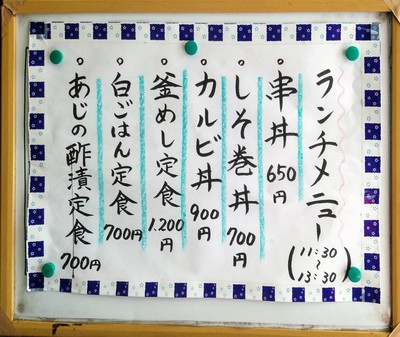 ランチメニュー
(11:30~13:30)
串丼 650円
しそ巻丼 700円
カルビ丼 900円
釜めし定食 1.200円
白ごはん定食 700円
あじの酢漬定食 700円